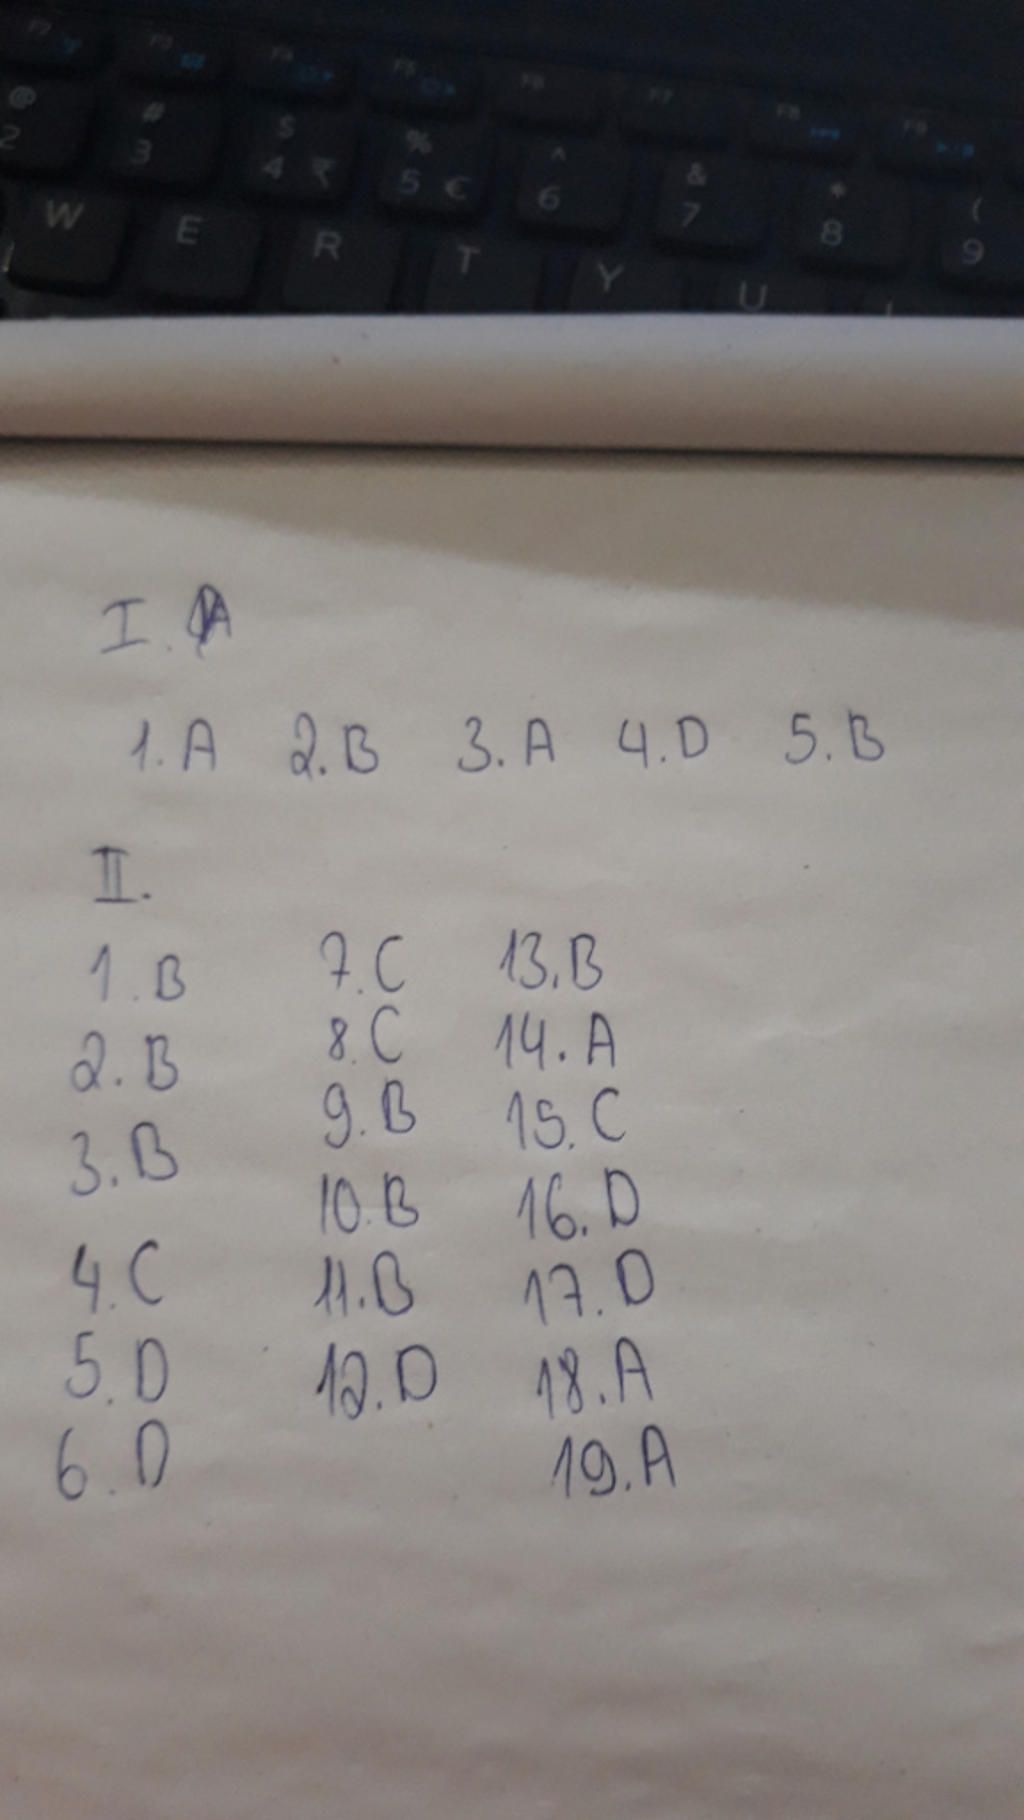 F7 F8 F9
@ # $ % ^ & * (
2 3 4 ₹ 5 € 6 7 8 9
W E R T Y U
I. A
1. A 2. B 3. A 4. D 5. B
II.
1. B 7. C 13. B
2. B 8. C 14. A
3. B 9. B 15. C
4. C 10. B 16. D
5. D 11. B 17. D
6. D 12. D 18. A
19. A